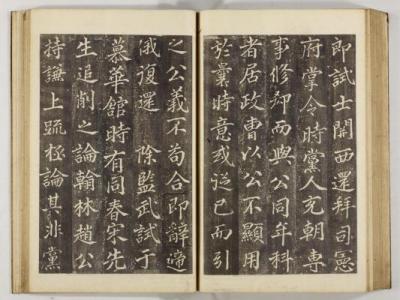 即試士關西還拜司憲
府掌令時黨人充朝專
事修却而與公同年科
者居政曹以公不顯用
於曩時意或從已而引
之公義不苟合即辭遞
俄復還除監武試于
慕華館時有同春宋先
生追削之論翰林趙公
持謙上疏極論其非黨